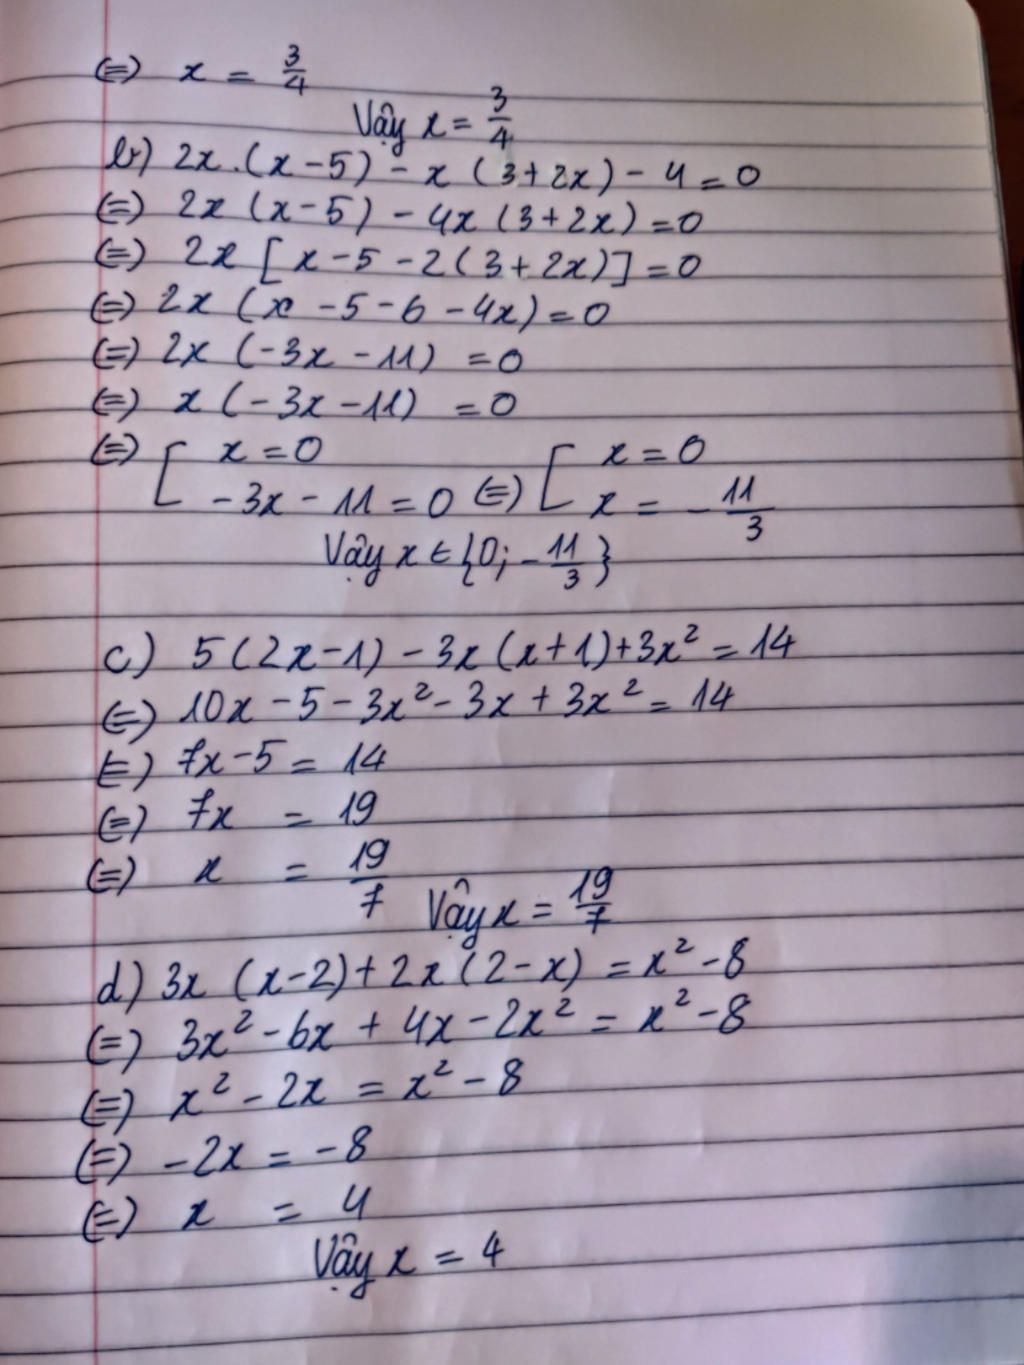 (=) x = 3/4
Vậy x = 3/4
b) 2x.(x-5) - x(3+2x) - 4 = 0
(=) 2x(x-5) - 4x(3+2x) = 0
(=) 2x[x-5-2(3+2x)] = 0
(=) 2x(x-5-6-4x) = 0
(=) 2x(-3x-11) = 0
(=) x(-3x-11) = 0
(=) [ x = 0 (=) [ x = 0
-3x-11 = 0 x = -11/3
Vậy x ∈ {0; -11/3}
c) 5(2x-1) - 3x(x+1) + 3x² = 14
(=) 10x - 5 - 3x² - 3x + 3x² = 14
(=) 7x - 5 = 14
(=) 7x = 19
(=) x = 19/7
Vậy x = 19/7
d) 3x(x-2) + 2x(2-x) = x² - 8
(=) 3x² - 6x + 4x - 2x² = x² - 8
(=) x² - 2x = x² - 8
(=) -2x = -8
(=) x = 4
Vậy x = 4